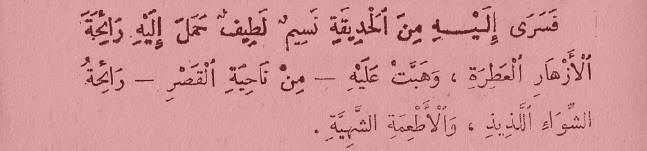 فَسَرَى إِلَيْهِ مِنَ ٱلْحَدِيقَةِ نَسِيمٌ لَطِيفٌ حَمَلَ إِلَيْهِ رَائِحَةَ
ٱلْأَزْهَارِ ٱلْعَطِرَةِ ، وَهَبَّتْ عَلَيْهِ – مِنْ نَاحِيَةِ ٱلْقَصْرِ – رَائِحَةُ
الشِّوَاءِ ٱللَّذِيذِ ، وَٱلْأَطْعِمَةِ الشَّهِيَّةِ .